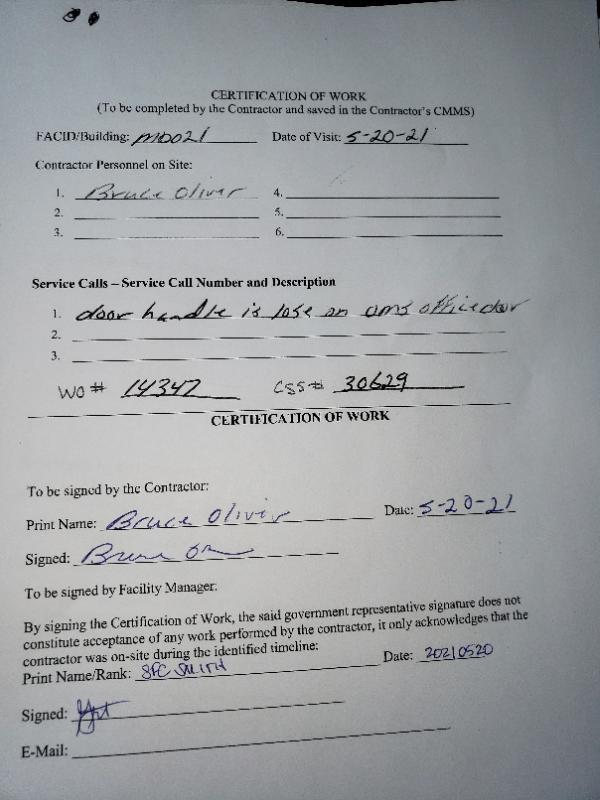 CERTIFICATION OF WORK
(To be completed by the Contractor and saved in the Contractor's CMMS)
FACID/Building: MD021 Date of Visit: 5-20-21
Contractor Personnel on Site:
1. Bruce Oliver 4.
2. 5.
3. 6.
Service Calls – Service Call Number and Description
1. door handle is lose on oms office door
2.
3.
WO# 14347 CSS# 30629
CERTIFICATION OF WORK
To be signed by the Contractor:
Print Name: Bruce Oliver Date: 5-20-21
Signed: Bruce
To be signed by Facility Manager:
By signing the Certification of Work, the said government representative signature does not
constitute acceptance of any work performed by the contractor, it only acknowledges that the
contractor was on-site during the identified timeline:
Print Name/Rank: SFC SMITH Date: 20210520
Signed:
E-Mail: